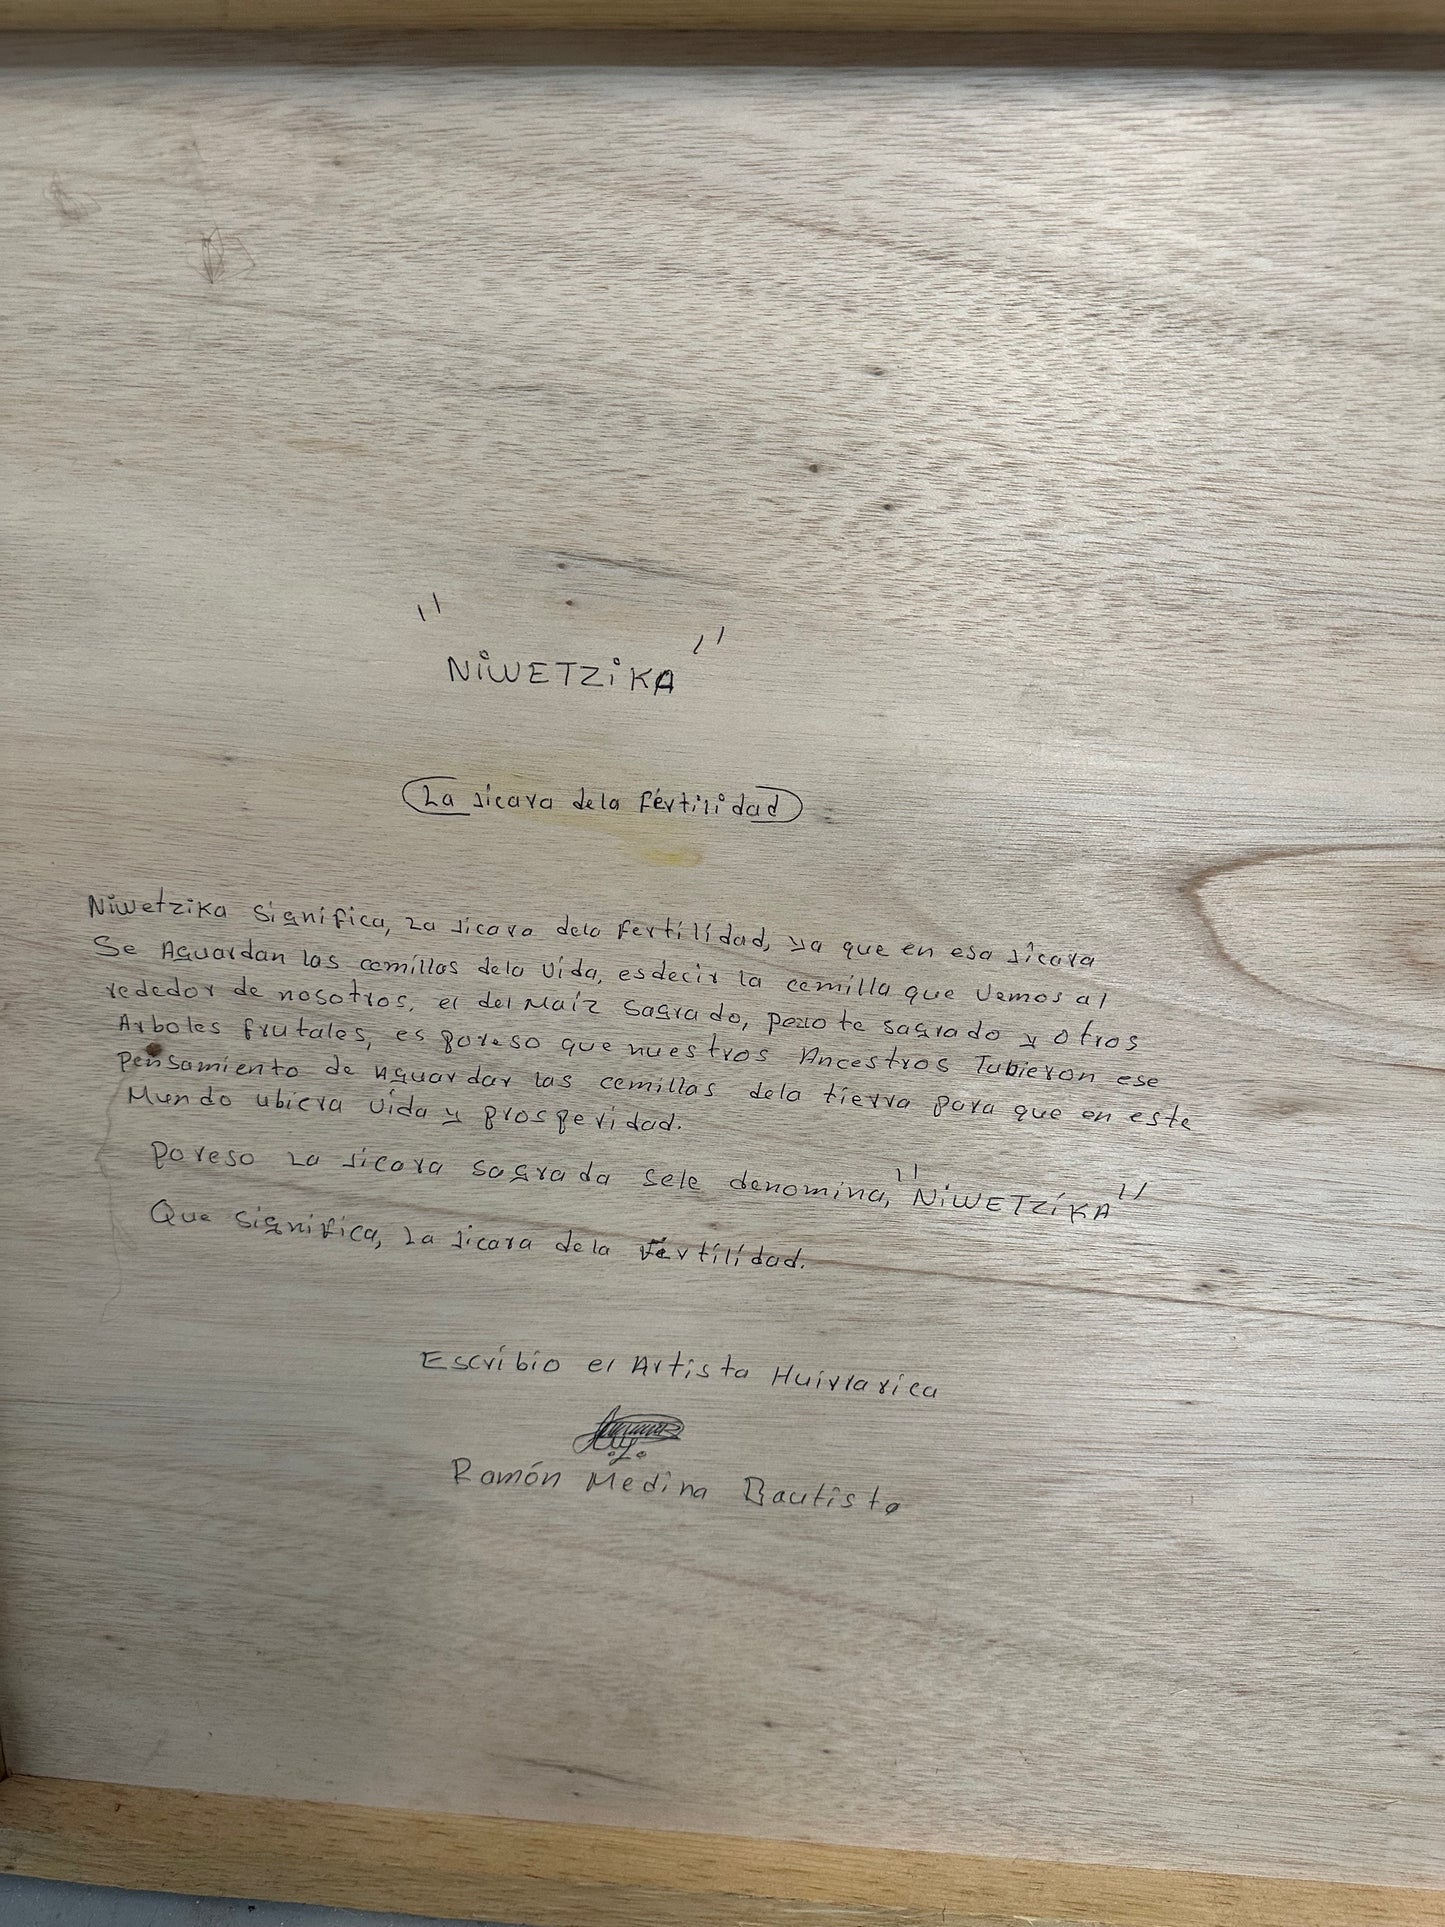 "NiWETZiKA"
La Jicara dela Fértilidad
Niwetzika Significa, La Jicara dela Fertilidad, ya que en esa Jicara
Se Aguardan las cemillas dela Vida, esdecir la cemilla que Vemos al
rededor de nosotros, el del Maíz Sagrado, peyote sagrado y otros
Arboles frutales, es poreso que nuestros Ancestros Tubieron ese
Pensamiento de Aguardar las cemillas dela tierra para que en este
Mundo ubiera Vida y prosperidad.
Poreso La Jicara sagrada sele denomina, "NiWETZíKA"
Que significa, La Jicara dela Fértilidad.
Escribio el Artista Huirrarica
Ramón Medina Bautista